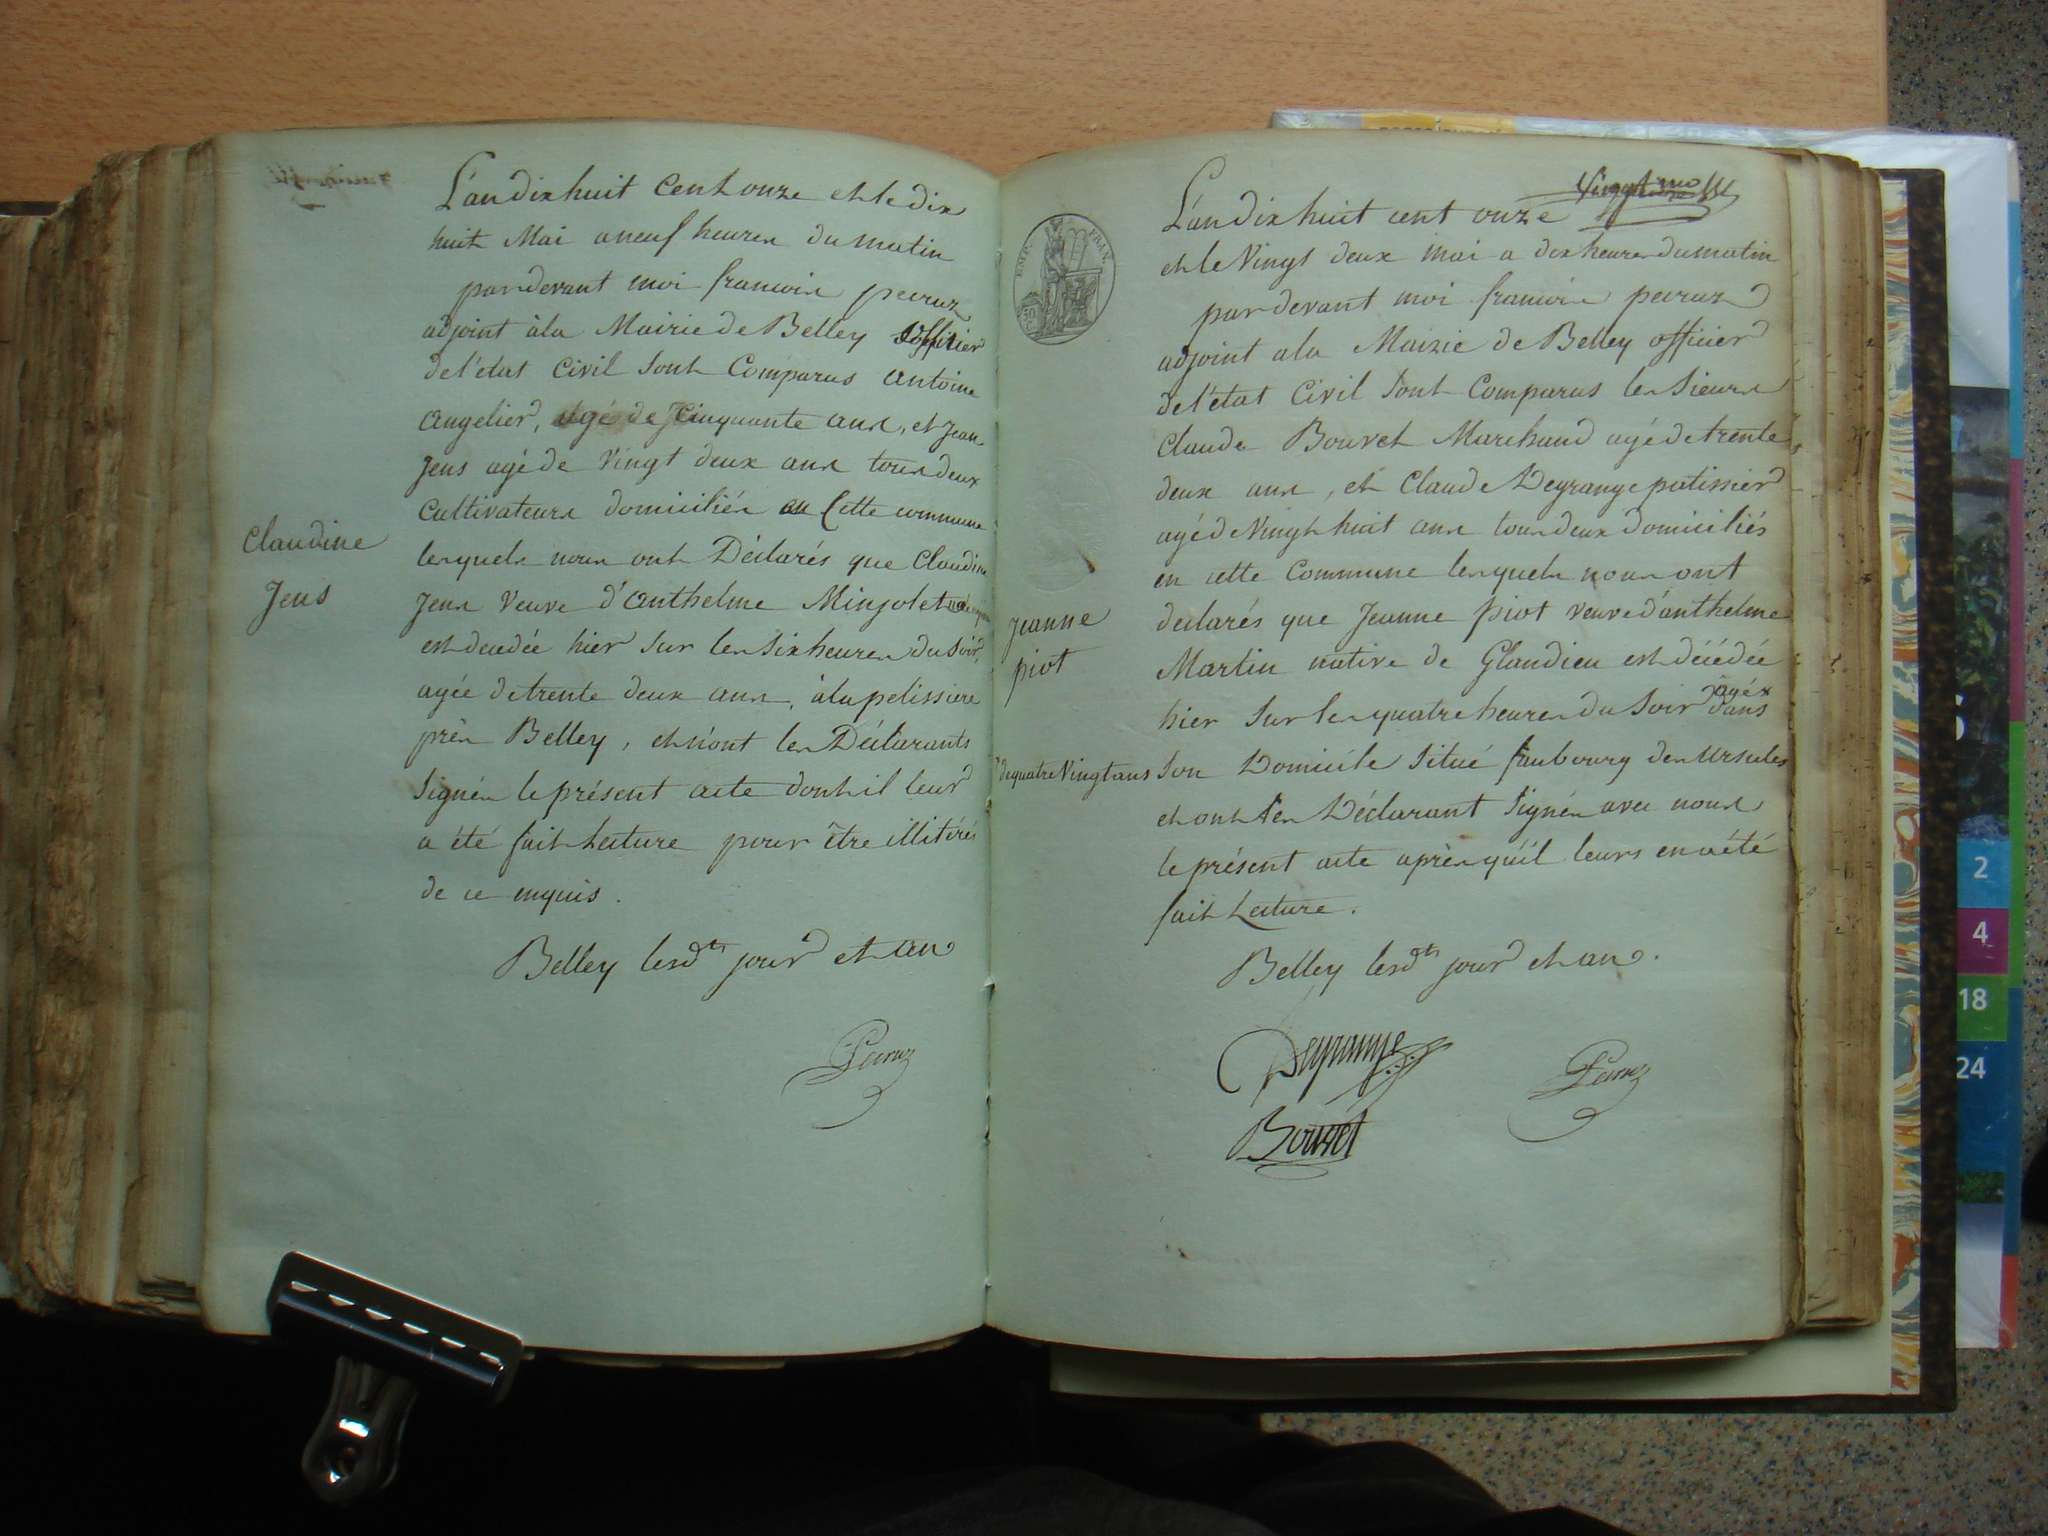 L'an dix huit cent onze et le dix
huit Mai a neuf heures du matin
pardevant moi francois peiruz
adjoint à la Mairie de Belley officier
de l'état Civil sont Comparus antoine
angelier, agé de cinquante ans, et jean
Jens agé de Vingt deux ans tous deux
Cultivateurs domiciliés en Cette commune
lesquels nous ont Déclarés que Claudine
Jens Veuve d'anthelme Minjolet
est decedée hier sur les six heures du soir,
agée de trente deux ans, à la pelissiere
près Belley, et n'ont les Déclarants
signés le présent acte dont il leur
a été fait Lecture pour être illitérés
de ce enquis.
Belley lesdts jour et an
Peiruz
Claudine
Jens
Vingt
EMP. FRAN.
50
L'an dix huit cent onze
et le Vingt deux mai a dix heures du matin
pardevant moi francois peiruz
adjoint a la Mairie de Belley officier
de l'état Civil sont Comparus les sieurs
Claude Bouvet Marchand agé de trente
deux ans, et Claude Degrange patissier
agé de Vingt huit ans tous deux domiciliés
en cette Commune lesquels nous ont
déclarés que Jeanne piot veuve d'anthelme
Martin native de Glandieu est décédée
hier sur les quatre heures du soir agée dans
son Domicile situé faubourg des ursules
et ont les Déclarant signés avec nous
le présent acte après qu'il leurs en a été
fait Lecture.
Belley lesdts jour et an.
Degrange
Peiruz
Bouvet
jeanne
piot
de quatre Vingt ans
2
4
18
24